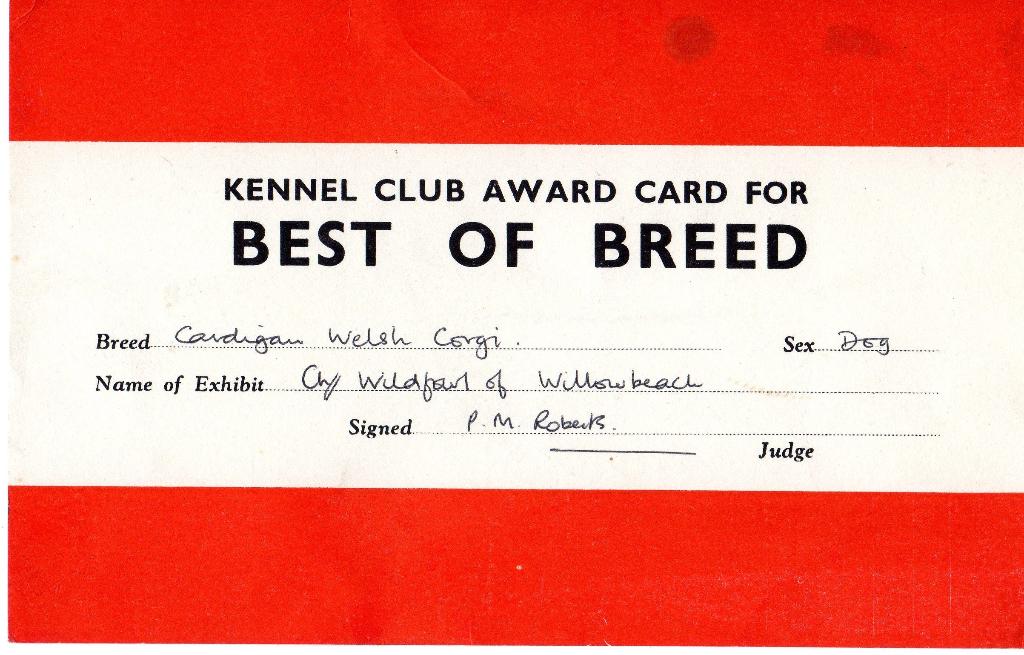 KENNEL CLUB AWARD CARD FOR
BEST OF BREED
Breed Cardigan Welsh Corgi. Sex Dog
Name of Exhibit Ch/ Wildfowl of Willowbeach
Signed P. M. Roberts.
Judge